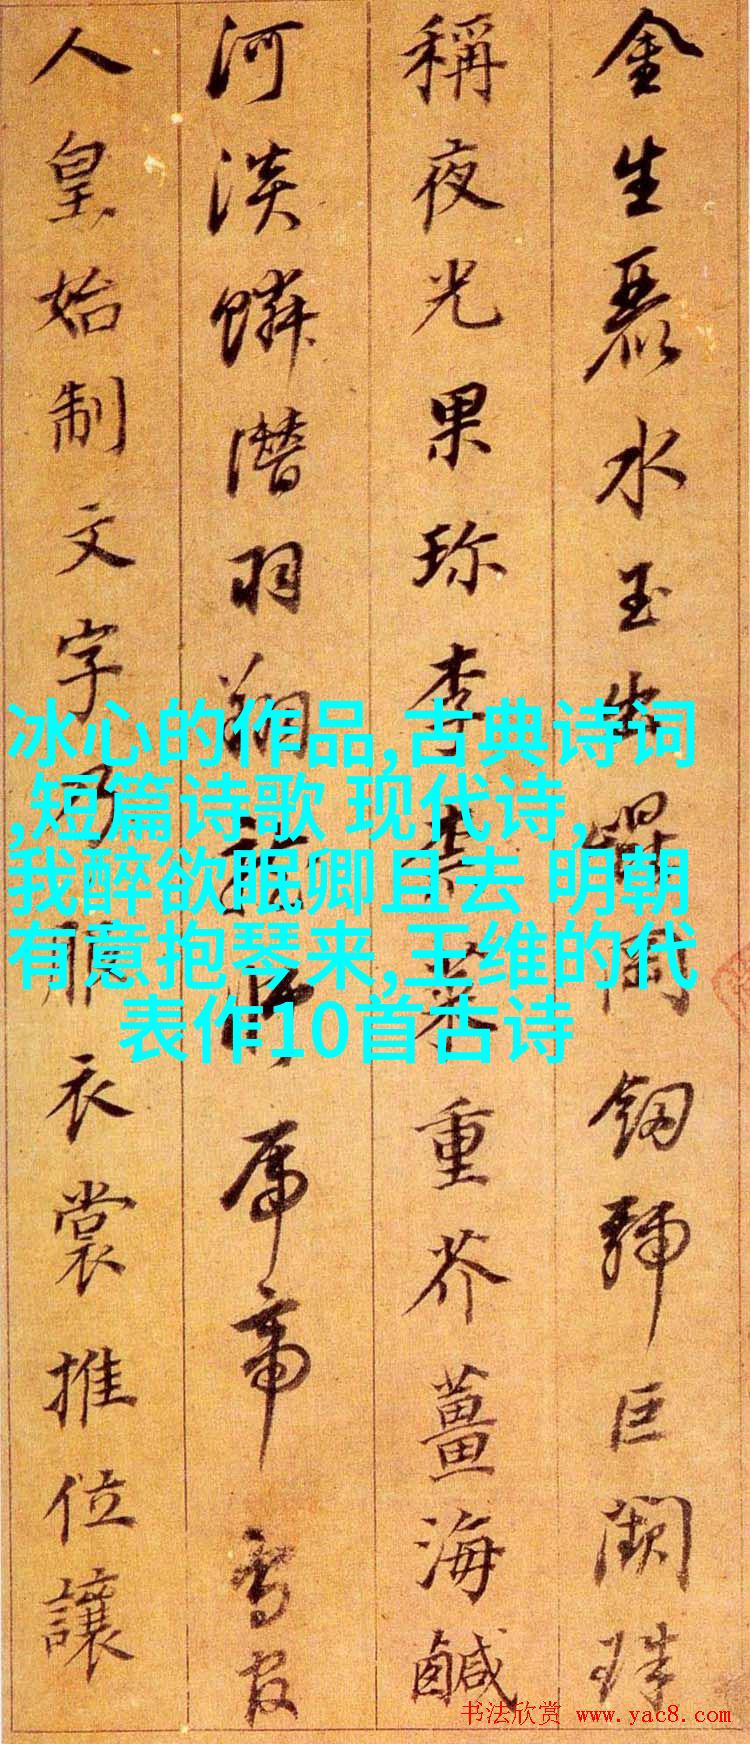 金生麗水玉出崑岡劍號巨闕珠
稱夜光果珍李柰菜重芥薑海鹹
河淡鱗潛羽翔龍師帝鳥官
人皇始制文字乃服衣裳推位讓
冰心的作品,古典诗词
,短篇诗歌 现代诗,
我醉欲眠卿且去 明朝
有意抱琴来,王维的代
表作10首古诗
书法欣赏 www.yac8.com